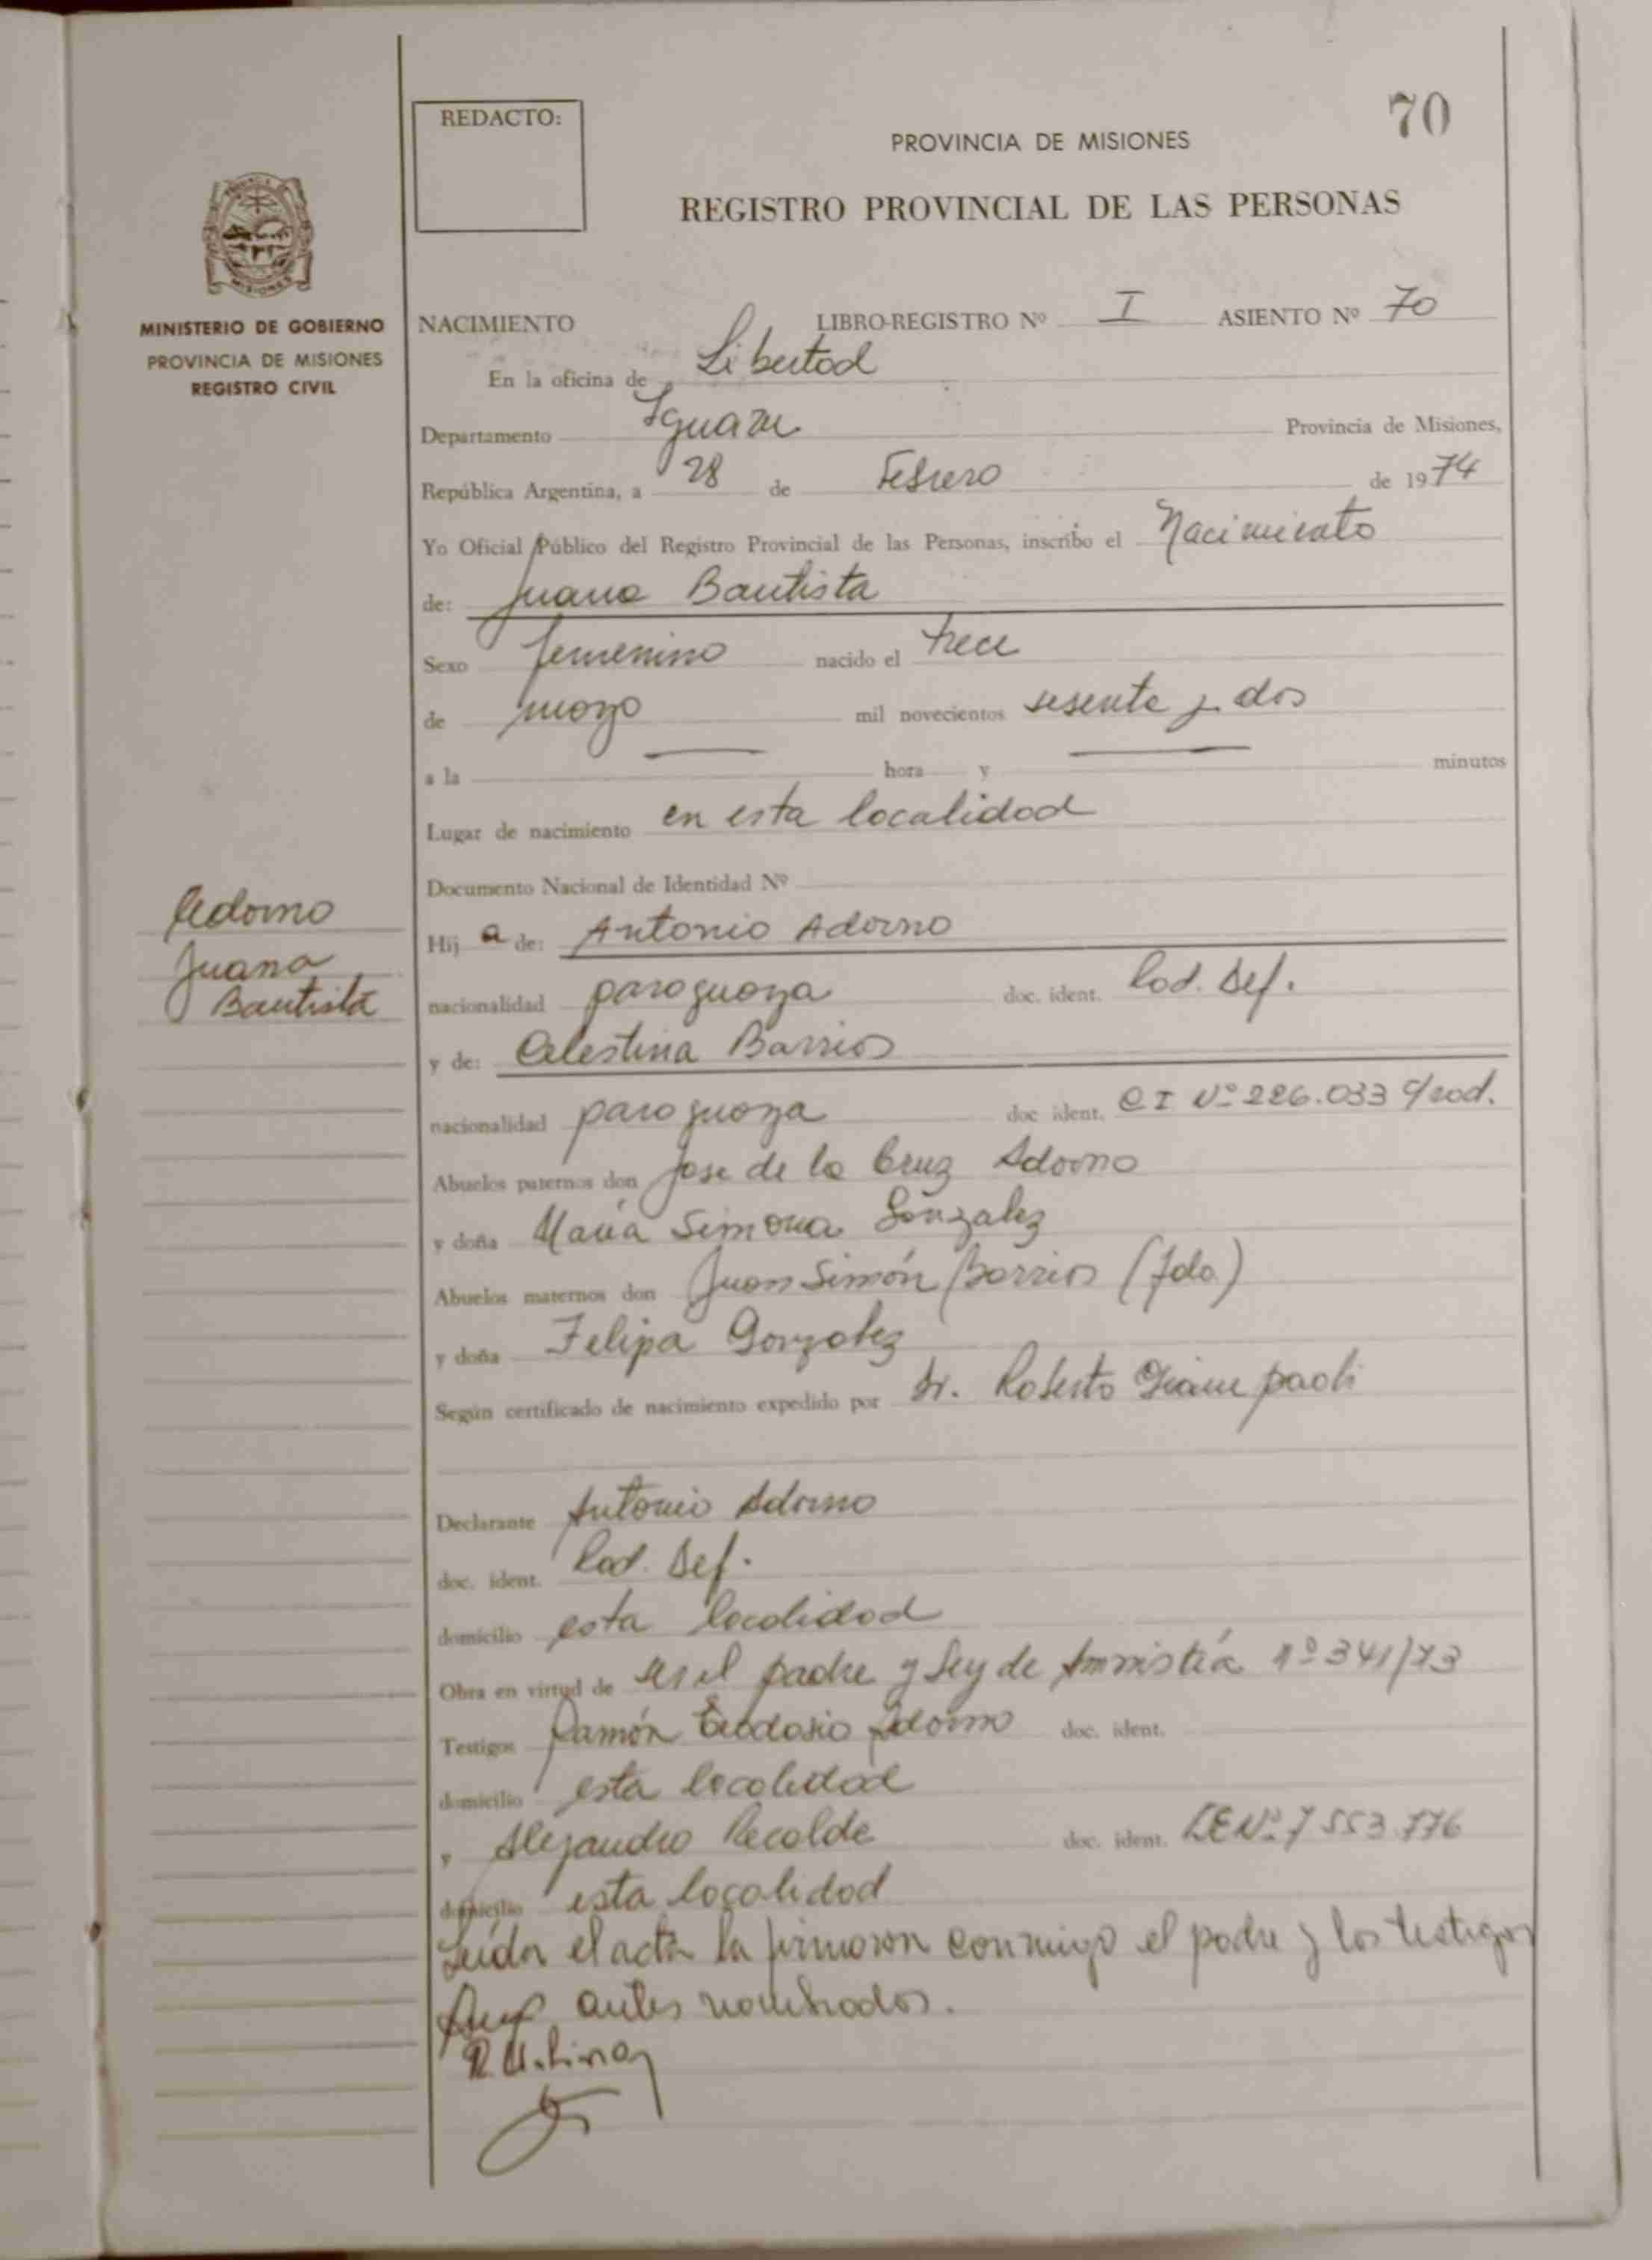 70
REDACTO:
PROVINCIA DE MISIONES
REGISTRO PROVINCIAL DE LAS PERSONAS
MISIONES
MINISTERIO DE GOBIERNO
PROVINCIA DE MISIONES
REGISTRO CIVIL
NACIMIENTO LIBRO-REGISTRO Nº I ASIENTO Nº 70
En la oficina de Libertad
Departamento Iguazu Provincia de Misiones,
República Argentina, a 28 de Febrero de 1974
Yo Oficial Público del Registro Provincial de las Personas, inscribo el Nacimiento
de: Juana Bautista
Sexo femenino nacido el trece
de mayo mil novecientos sesenta y dos
a la hora y minutos
Lugar de nacimiento en esta localidad
Documento Nacional de Identidad Nº
Adorno
Juana
Bautista
Hij a de: Antonio Adorno
nacionalidad paraguaya doc. ident. Rad. Def.
y de: Celestina Barrios
nacionalidad paraguaya doc ident. CI Nº 226.033 c/rad.
Abuelos paternos don Jose de la Cruz Adorno
y doña Maria Simona González
Abuelos maternos don Juan Simón Barrios (fdo.)
y doña Felipa Gonzalez
Según certificado de nacimiento expedido por Dr. Roberto Giampaoli
Declarante Antonio Adorno
doc. ident. Rad. Def.
domicilio esta localidad
Obra en virtud de ser el padre y Ley de Amnistía nº 341/73
Testigos Ramón Teodosio Adorno doc. ident.
domicilio esta localidad
y Alejandro Recalde doc. ident. LE Nº 7 553.776
domicilio esta localidad
Leída el acta la firmaron conmigo el padre y los testigos
antes nombrados.